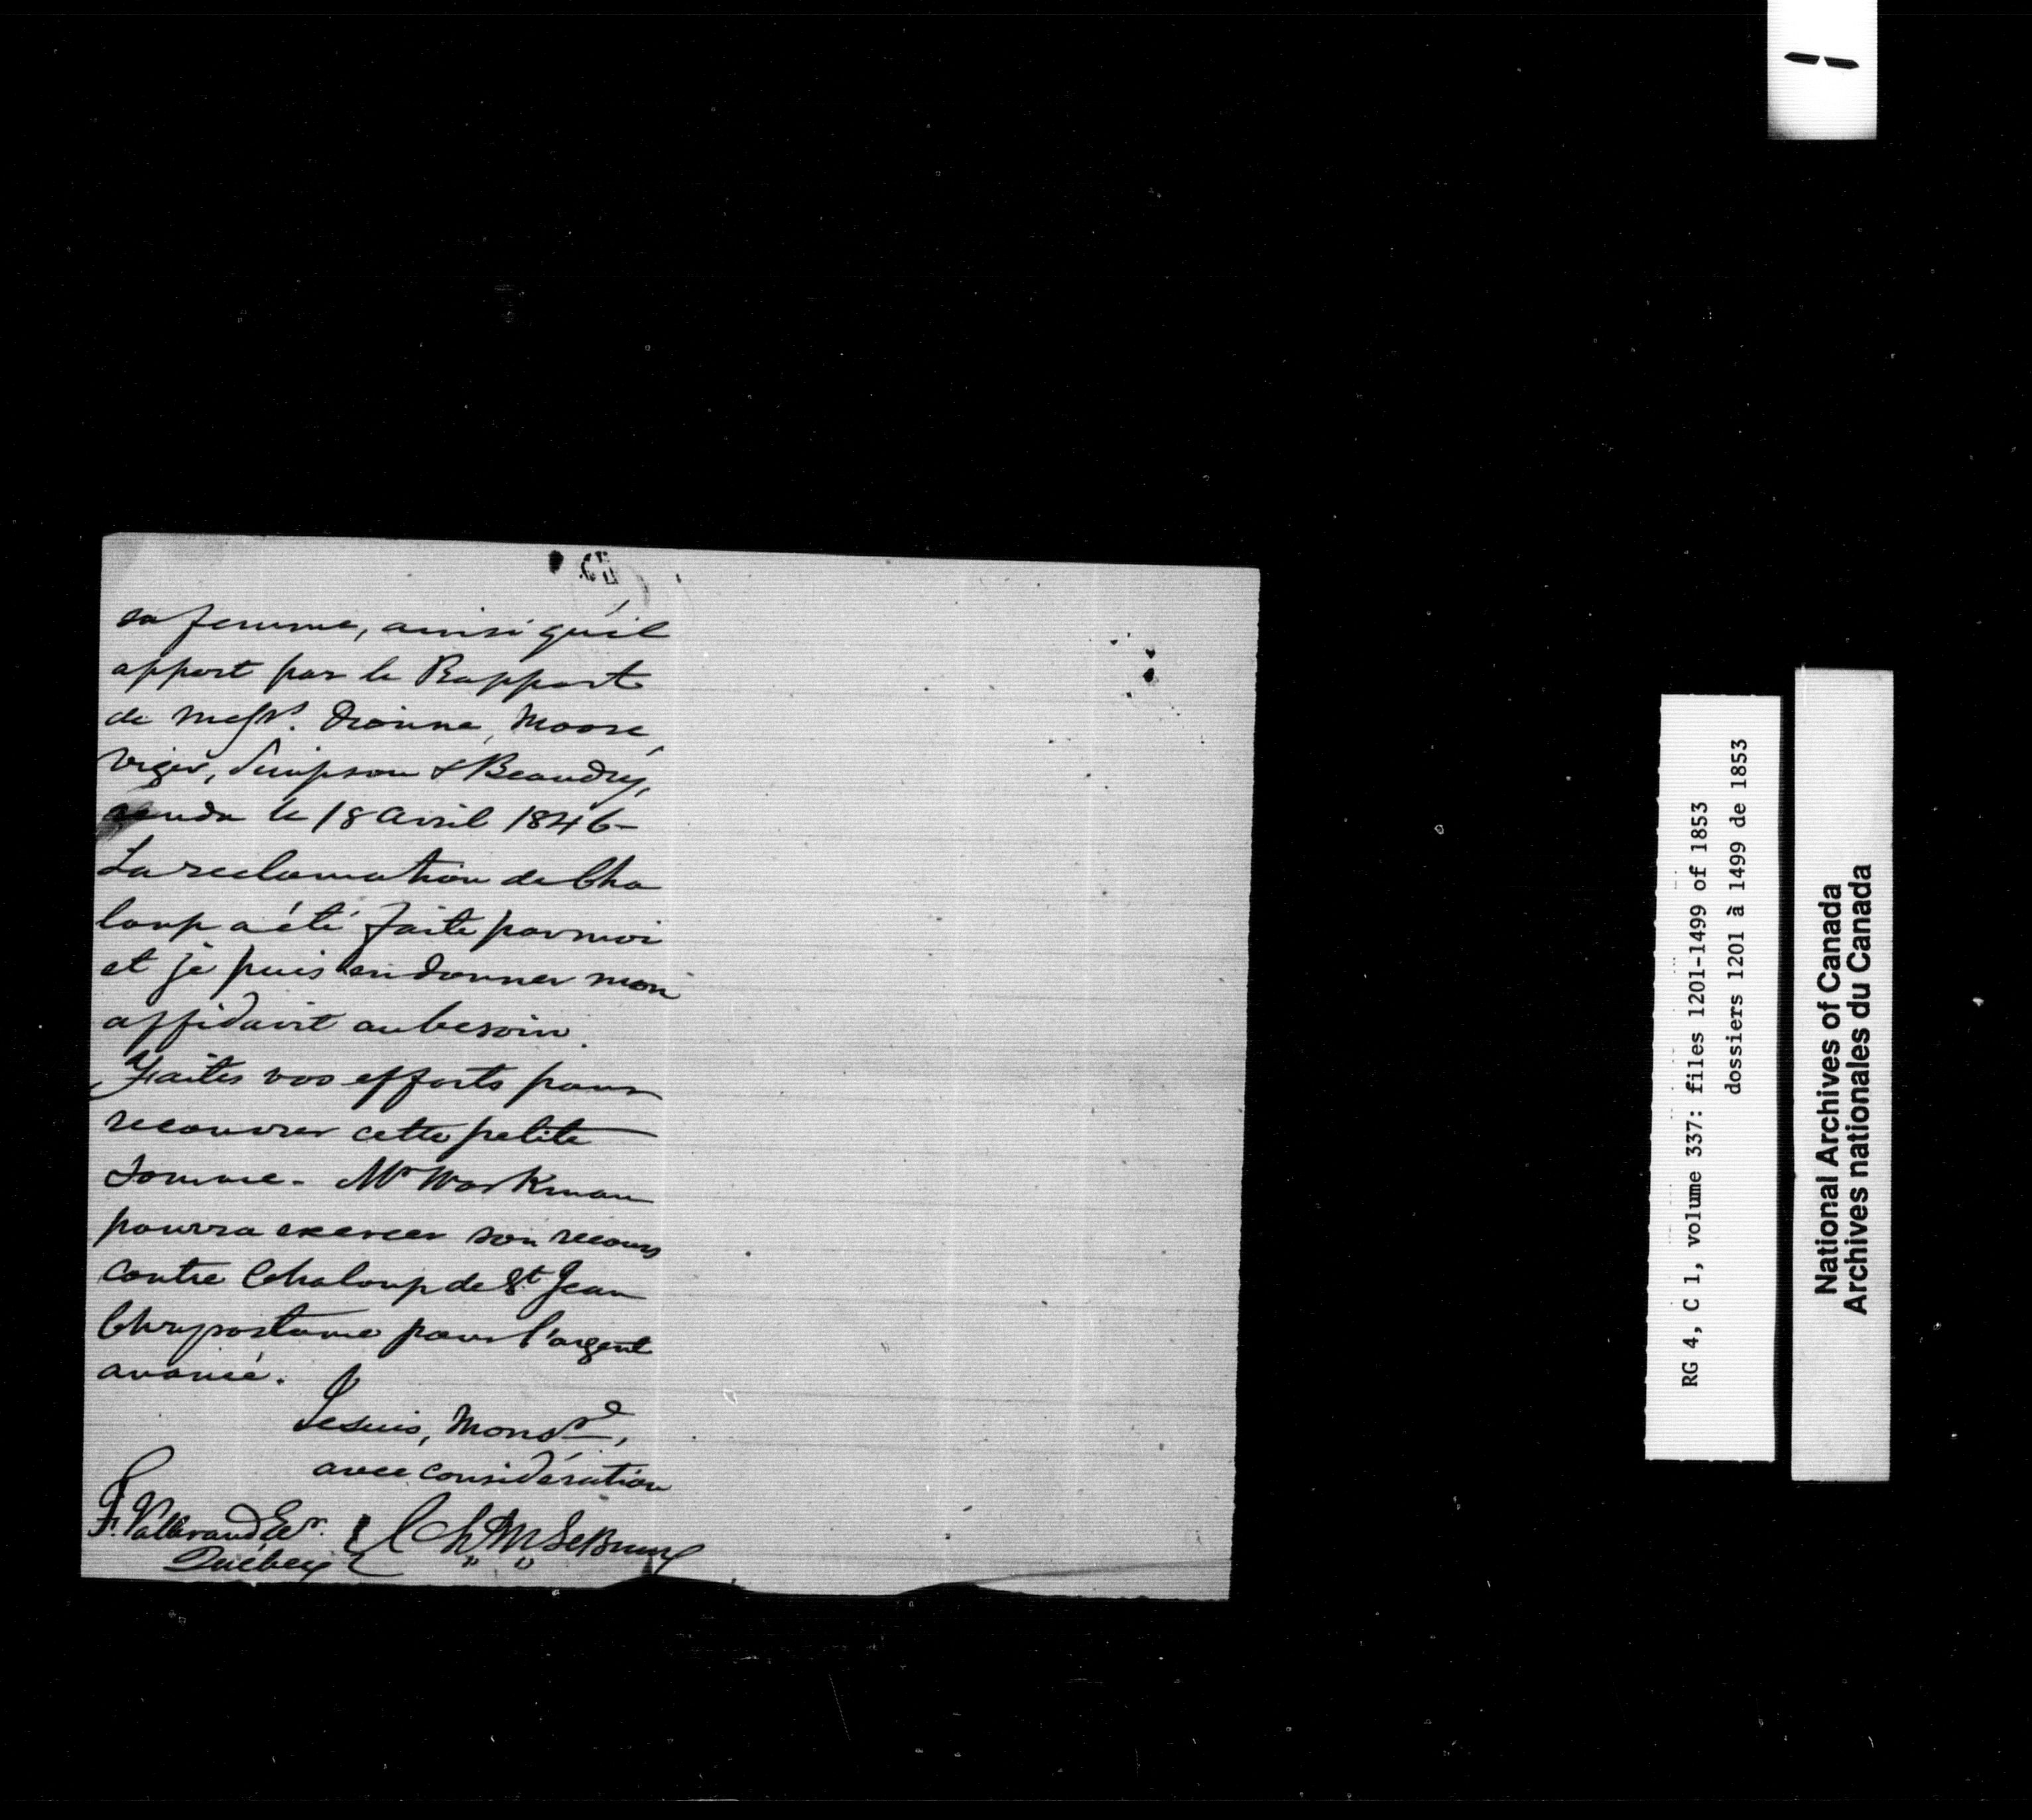 sa femme, ainsi qu'il
appert par le Rapport
de Messrs. Dionne, Moore,
Viger, Simpson & Beaudry,
rendu le 18 Avril 1846-
La reclamation de Cha
loup a été faite par moi
et je puis en donner mon
affidavit au besoin.
Faites vos efforts pour
recouvrer cette petite
somme - Mr Workman
pourra exercer son recours
contre Chaloup de St Jean
Chrysostome pour l'argent
avancé.
Je suis, Monsr,
avec considération
F. Vallerand Ecr.
Québec
Ch M LeBrun
RG 4, C 1, volume 337: files 1201-1499 of 1853
dossiers 1201 à 1499 de 1853
National Archives of Canada
Archives nationales du Canada